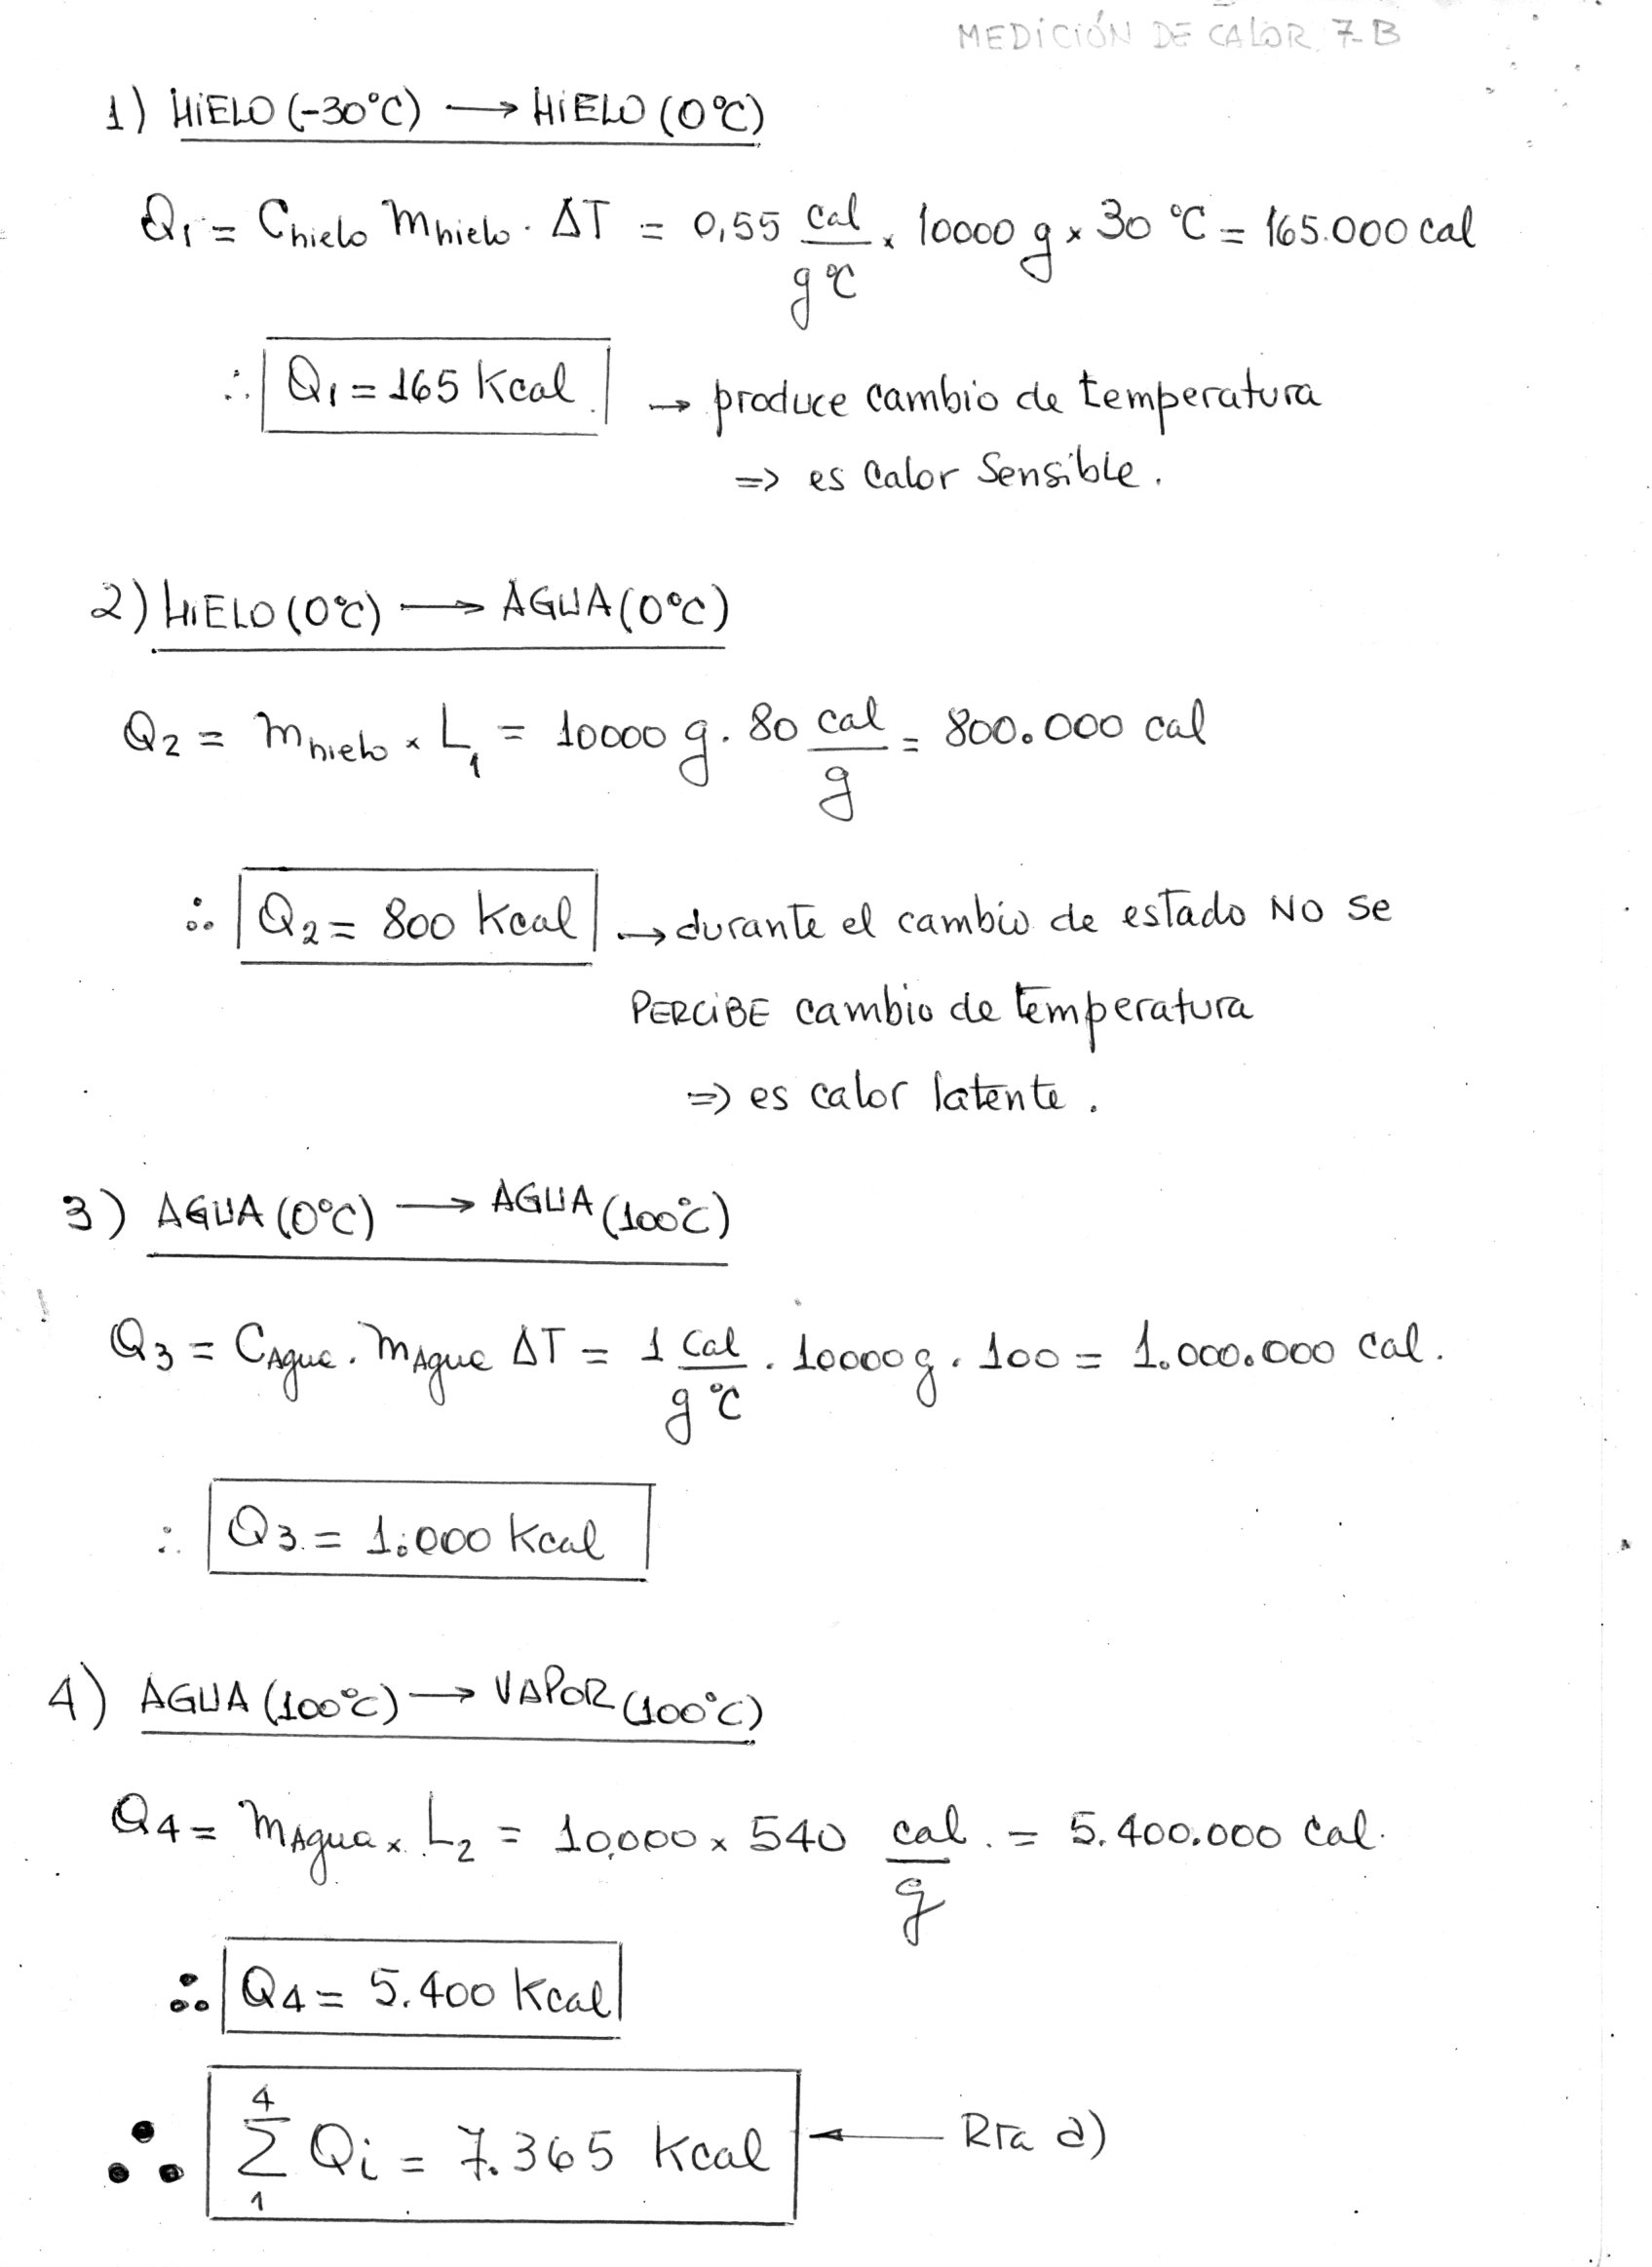 MEDICIÓN DE CALOR 7-B
1) HIELO (-30°C) → HIELO (0°C)
Q1 = Chielo mhielo · ΔT = 0,55 cal/g°C × 10000 g × 30 °C = 165.000 cal
∴ Q1 = 165 Kcal → produce cambio de temperatura
=> es Calor Sensible.
2) HIELO (0°C) → AGUA (0°C)
Q2 = mhielo × L1 = 10000 g · 80 cal/g = 800.000 cal
∴ Q2 = 800 Kcal → durante el cambio de estado NO se
PERCIBE cambio de temperatura
=> es calor latente.
3) AGUA (0°C) → AGUA (100°C)
Q3 = CAgua · mAgua ΔT = 1 Cal/g°C · 10000 g · 100 = 1.000.000 cal.
∴ Q3 = 1.000 Kcal
4) AGUA (100°C) → VAPOR (100°C)
Q4 = mAgua × L2 = 10.000 × 540 cal/g = 5.400.000 cal.
∴ Q4 = 5.400 Kcal
∴ 4 Σ 1 Qi = 7.365 Kcal ← Rta a)